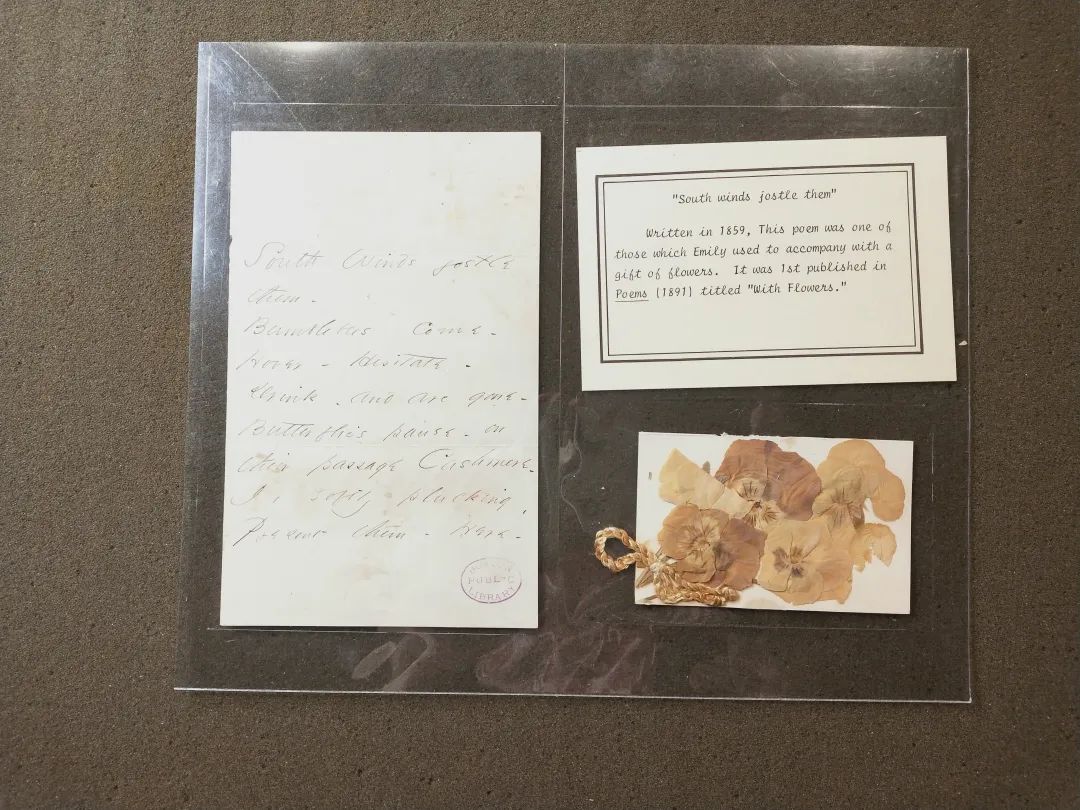 South Winds jostle
them -
Bumblebees Come -
hover - Hesitate -
Drink - and are gone -
Butterflies pause - on
their passage Cashmere -
I, softly plucking,
Present them - here -
BOSTON
PUBLIC
LIBRARY
"South winds jostle them"
Written in 1859, This poem was one of
those which Emily used to accompany with a
gift of flowers. It was 1st published in
Poems (1891) titled "With Flowers."